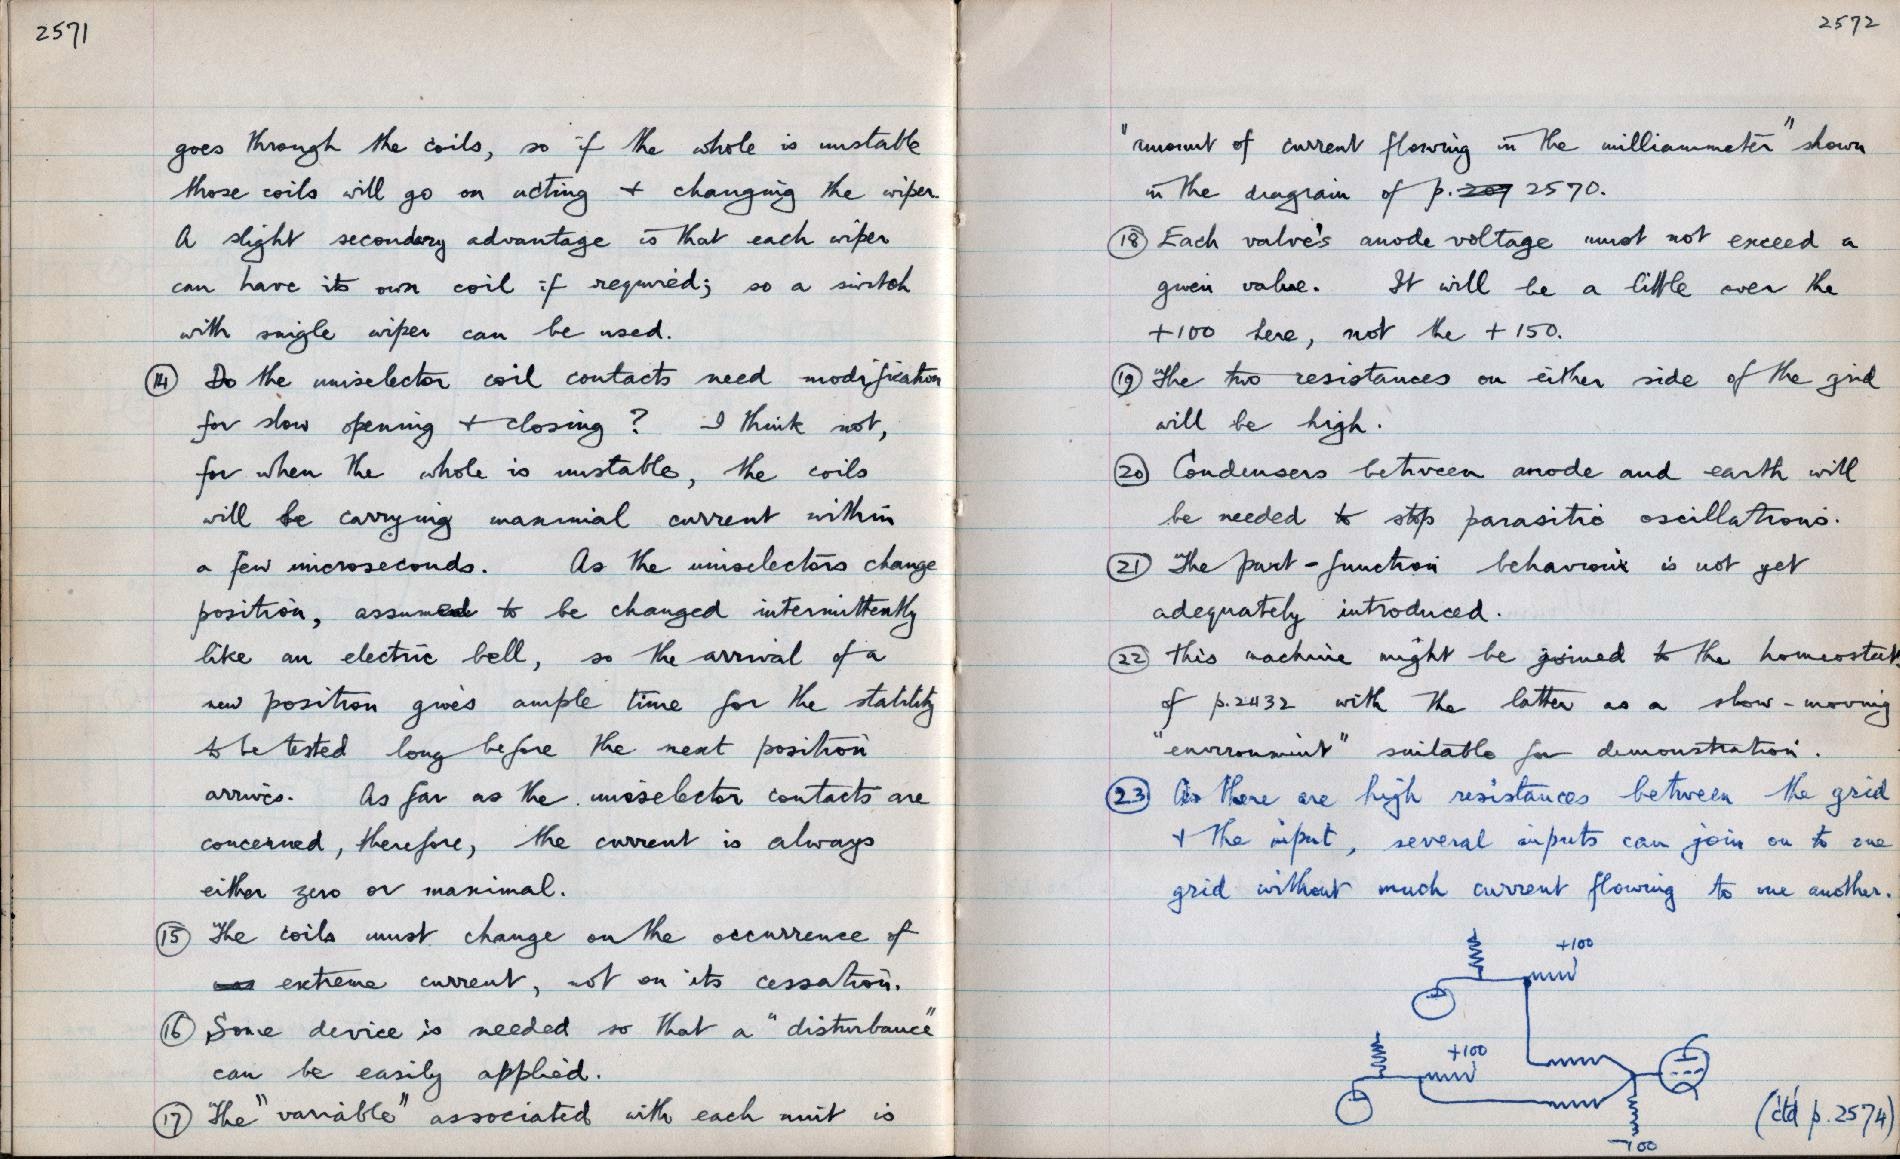 2571
goes through the coils, so if the whole is unstable
those coils will go on acting + changing the wiper.
A slight secondary advantage is that each wiper
can have its own coil if required; so a switch
with single wiper can be used.
(14) Do the uniselector coil contacts need modification
for slow opening + closing? I think not,
for when the whole is unstable, the coils
will be carrying maximal current within
a few microseconds. As the uniselectors change
position, assumed to be changed intermittently
like an electric bell, so the arrival of a
new position gives ample time for the stability
to be tested long before the next position
arrives. As far as the uniselector contacts are
concerned, therefore, the current is always
either zero or maximal.
(15) The coils must change on the occurrence of
extreme current, not on its cessation.
(16) Some device is needed so that a "disturbance"
can be easily applied.
(17) The "variable" associated with each unit is
2572
"amount of current flowing in the milliammeter" shown
in the diagram of p. 207 2570.
(18) Each valve's anode voltage must not exceed a
given value. It will be a little over the
+100 here, not the +150.
(19) The two resistances on either side of the grid
will be high.
(20) Condensers between anode and earth will
be needed to stop parasitic oscillations.
(21) The part-function behaviour is not yet
adequately introduced.
(22) This machine might be joined to the homeostat
of p.2432 with the latter as a slow-moving
"environment" suitable for demonstration.
(23) As there are high resistances between the grid
+ the input, several inputs can join on to one
grid without much current flowing to one another.
+100
+100
-100
(ctd p.2574)